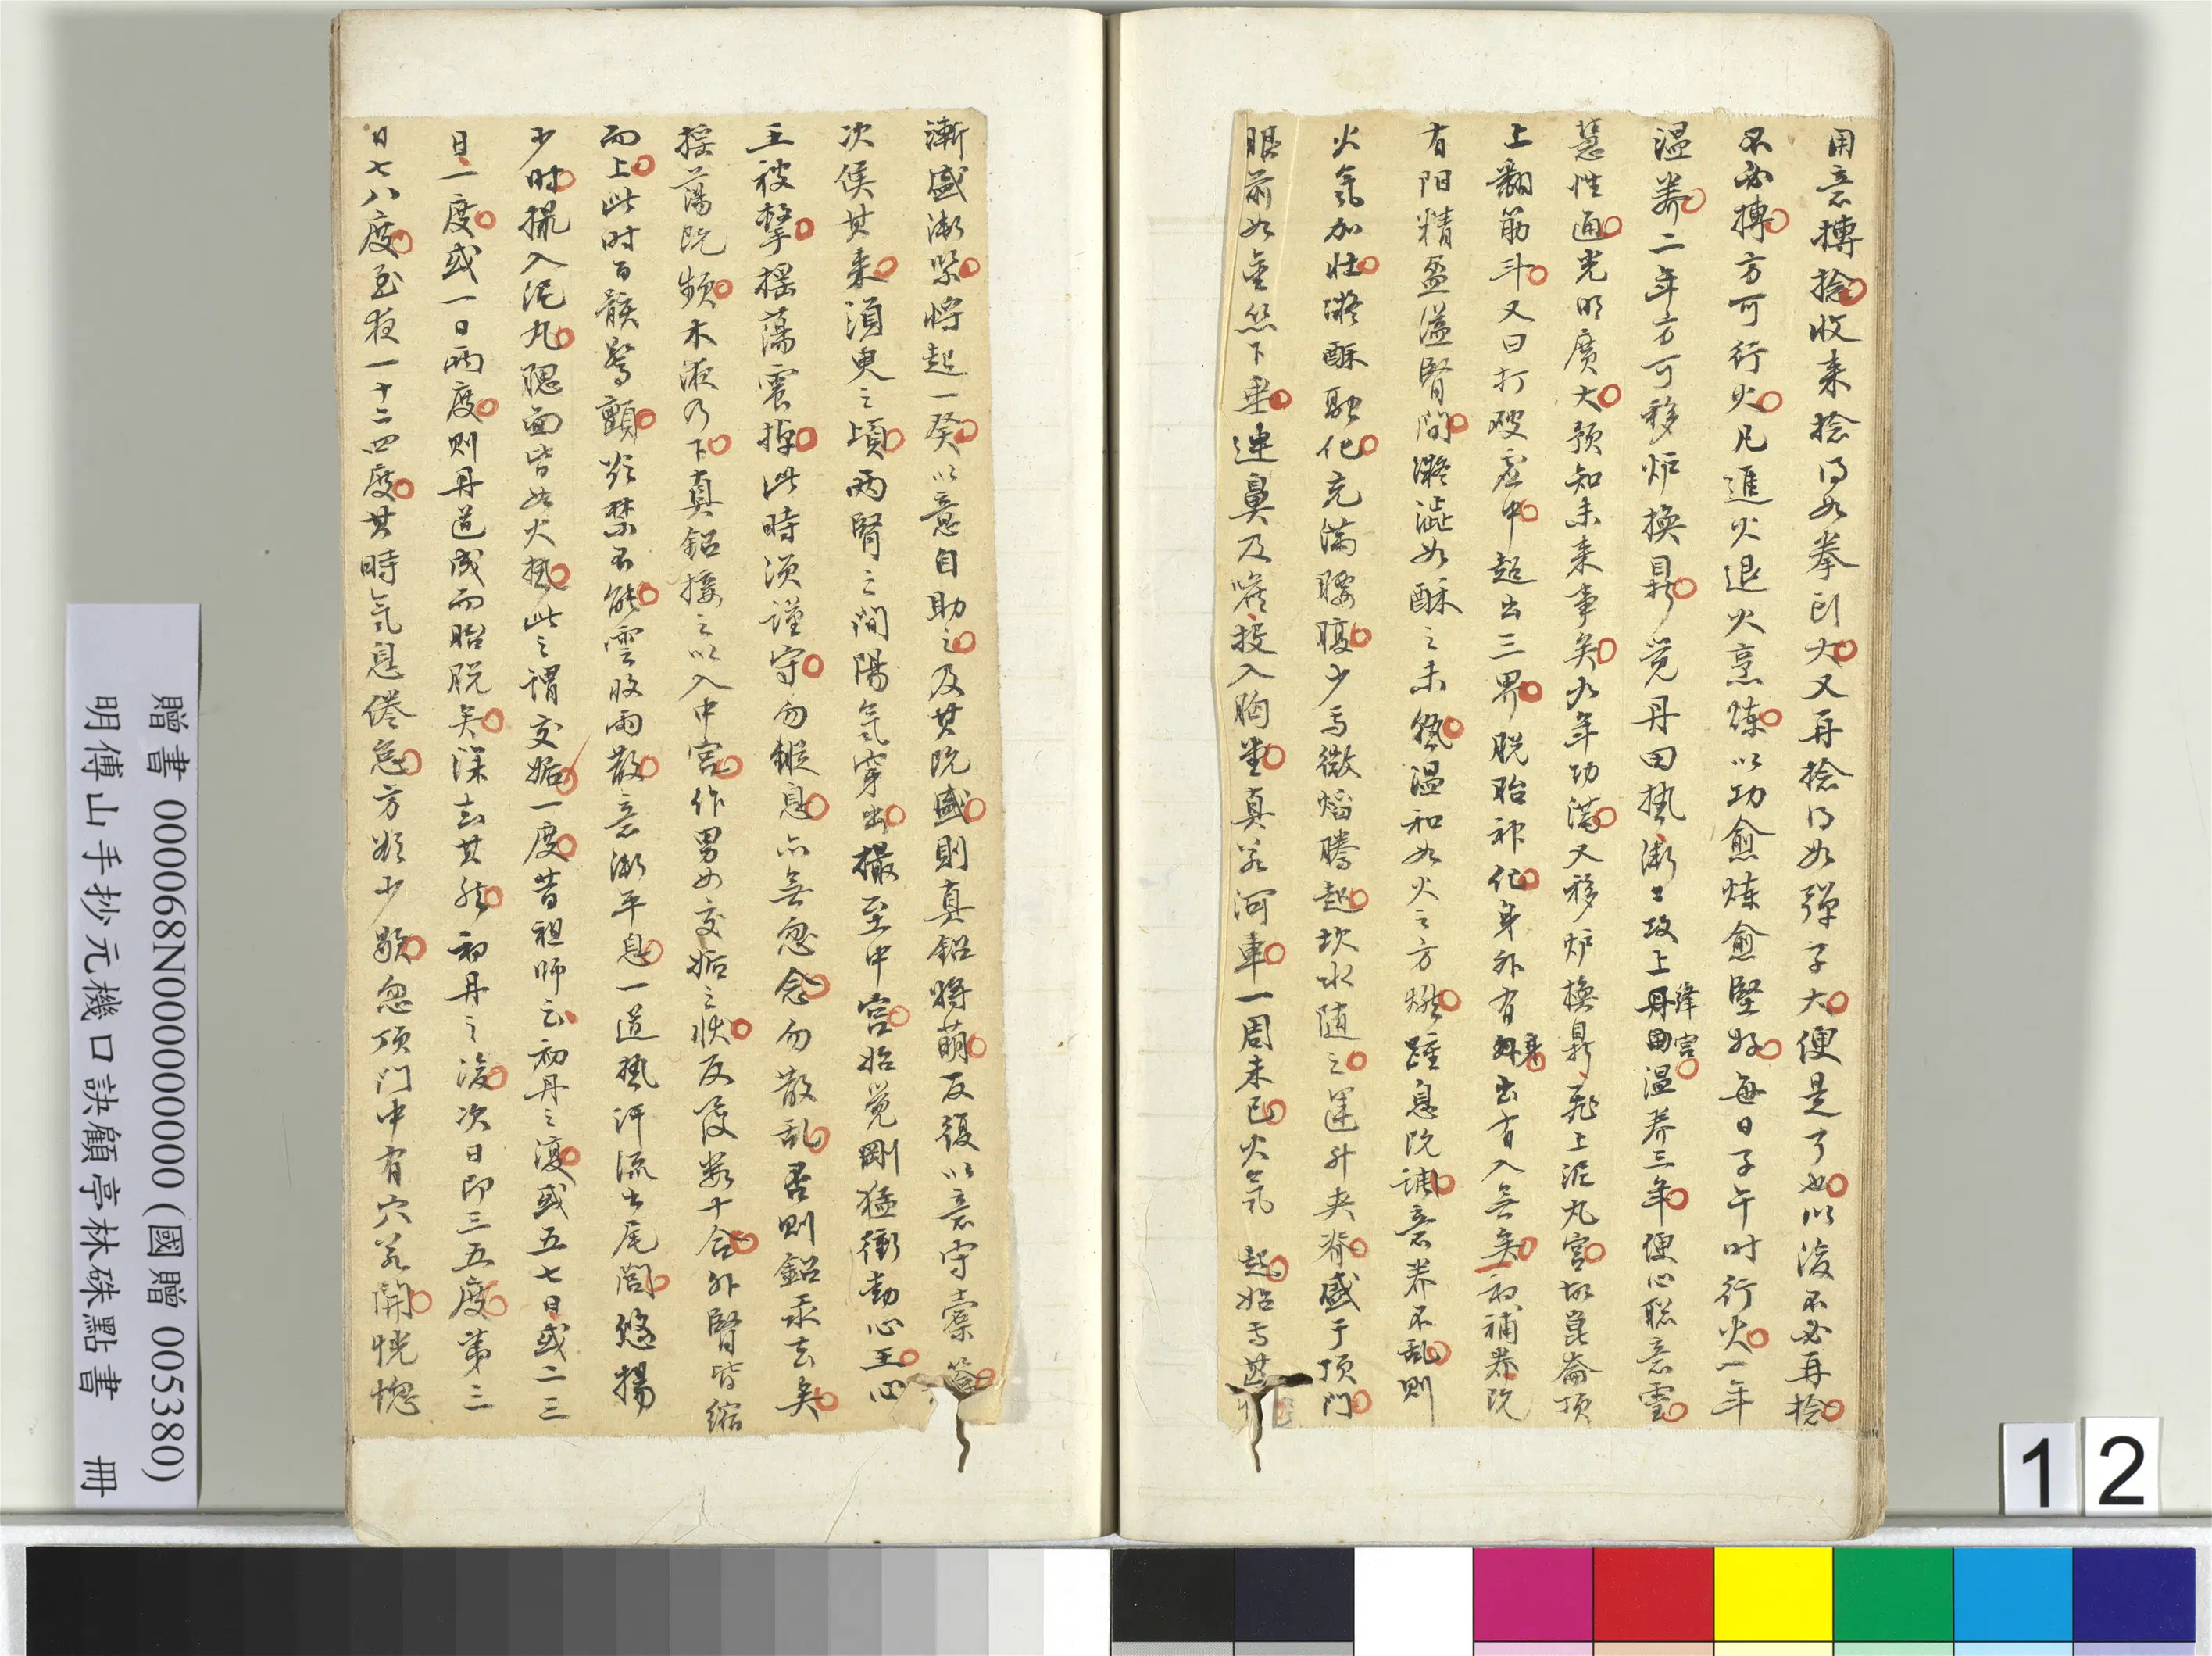 用意摶捻收来捻得如拳頭大又再捻得如彈子大便是了也以後不必再捻
不必摶方可行火凡進火退火烹煉以功愈煉愈堅好每日子午时行火一年
温養二年方可移炉換鼎覚丹田热漸々攻上丹田絳宮温养三年便心聡意靈
慧性通光明廣大預知未来事矣九年功满又移炉換鼎飛上泥丸宮故崑崙頂
上翻筋斗又曰打破虚中超出三界脱胎神化身外有身出有入无矣初補养既
有阳精盈溢腎間凝澁如酥之未熱温和如火之方燃踵息既調意养不乱則
火氣加壮凝酥融化充满腰腹少焉微焰騰起坎水随之運升夹脊盛于頂門
眼前如金丝下垂連鼻及喉投入胸堂真若河車一周未已火氣 起始焉其
漸盛漸緊将起一癸以意自助之及其既盛則真鉛将萌反復以意守橐籥
次侯其来須臾之頃兩腎之間陽氣穿出撮至中宮始覚剛猛衝動心王心
王被擊揺蕩震掉此時須谨守勿縦息亦無忽念勿散乱否則鉛汞去矣
揺蕩既頻木液乃下真鉛接之以入中宮作男女交姤之状反复数十合外腎皆缩
而上此时百骸驚顫欲禁不能雲收雨散意漸平息一道热汗流出尾閭悠揚
少时撮入泥丸腮面皆如火热此之謂交姤一度昔祖师云初丹之後或五七日或二三
日一度或一日兩度則丹道成而胎脱矣深去其然初丹之後次日即三五度第三
日七八度至夜一十二四度其時氣息倦怠方欲少歇忽頂门中有穴若開恍惚
贈書 000068N0000000000 (國贈 005380)
明傅山手抄元機口訣顧亭林硃點書 冊
12